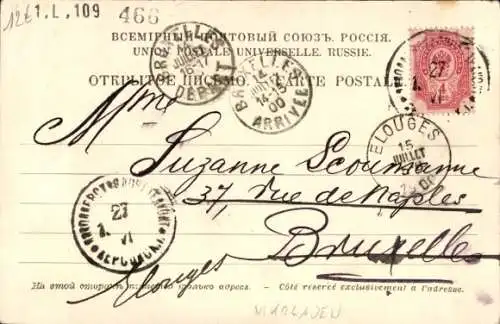 12€ 1.L,109 466
ВСЕМІРНЫЙ ПОЧТОВЫЙ СОЮЗЪ. РОССІЯ.
UNION POSTALE UNIVERSELLE. RUSSIE.
ОТКРЫТОЕ ПИСЬМО. CARTE POSTALE
BRUXELLES
JUILLET
16-17
DEPART
BRUXELLES
14
JUIL
14-15
00
ARRIVEE
27
VI
ELOUGES
15
JUILLET
Mme
Suzanne
37, Rue de Naples
Bruxelles
Elouges
27
1.
VI
На этой сторонѣ пишется только адресъ. — Côté réservé exclusivement à l'adresse.
NIKOLAJEW